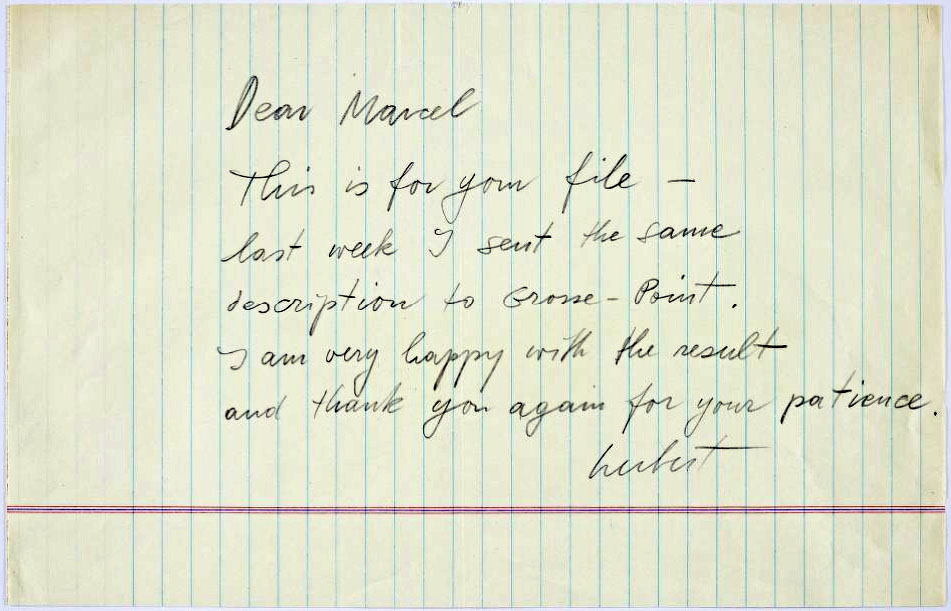 Dear Marcel
This is for your file –
last week I sent the same
description to Grosse-Point.
I am very happy with the result
and thank you again for your patience.
herbert